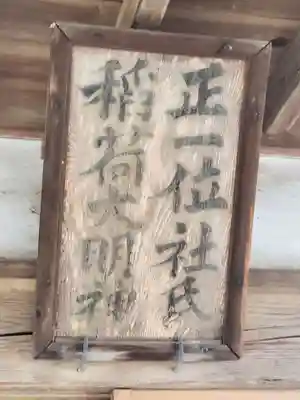 正一位社氏
稻荷大明神